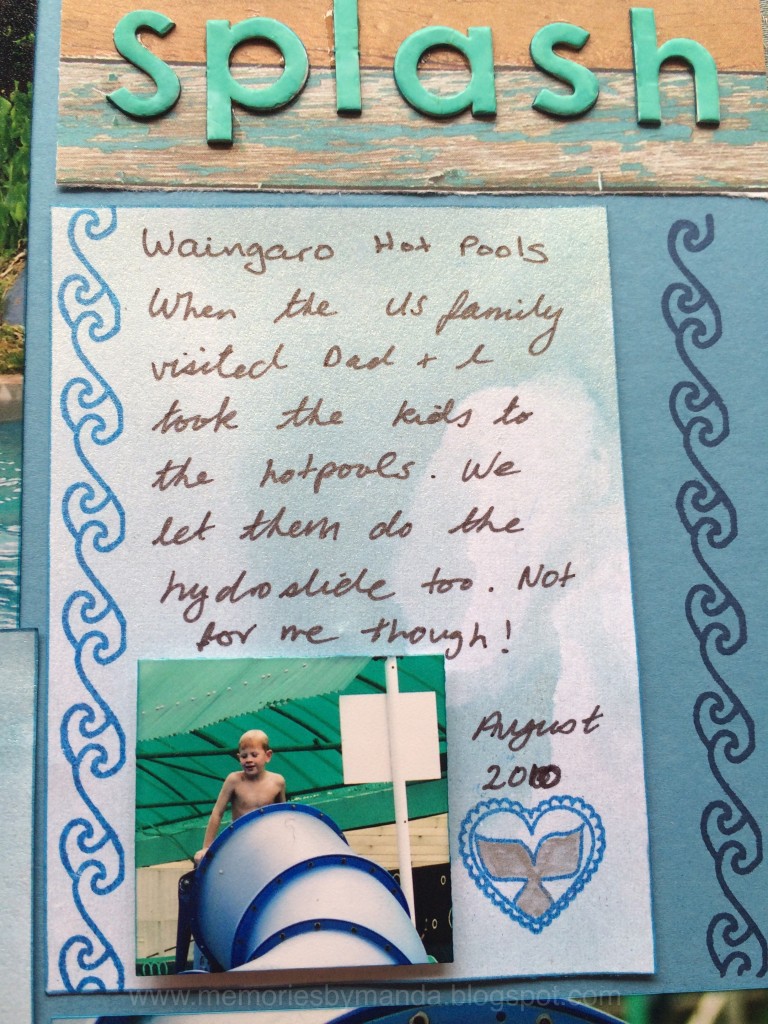 splash
Waingaro Hot Pools
When the US family
visited Dad + I
took the kids to
the hotpools. We
let them do the
hydroslide too. Not
for me though!
August
2010
www.memoriesbymanda.blogspot.com